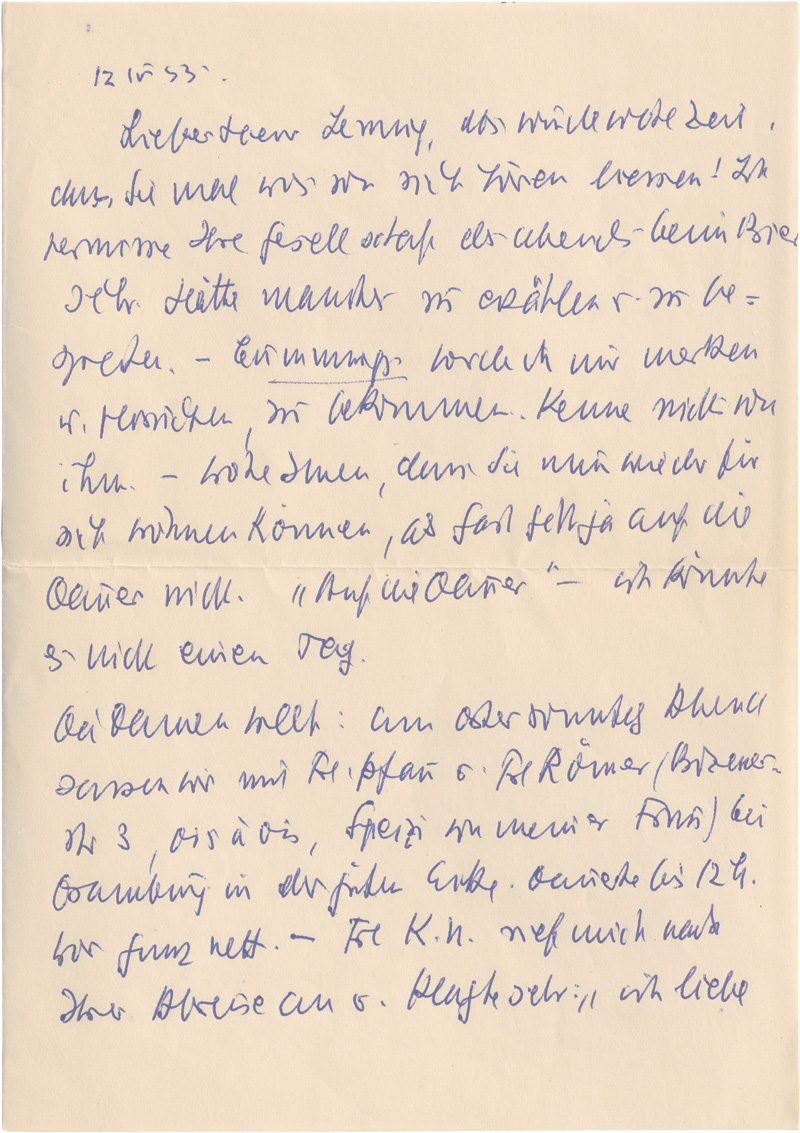 12 IV 53.
Lieber Herr Lennig, das wurde wohl Zeit,
dass Sie mal was von sich hören liessen! Ich
vermisse Ihre Gesellschaft des abends beim Bier
sehr. Hätte manches zu erzählen u. zu be=
sprechen. – Cummings werde ich mir merken
u. versuchen, zu bekommen. Kenne nichts von
ihm. – Hoffe Ihnen, dass Sie nun wieder für
sich wohnen können, als Gast geht ja auf die
Dauer nicht. „Auf die Dauer" – ich könnte
es nicht einen Tag.
Die Damenwelt: am Ostersonntag Abend
sassen wir mit Frl. Pfau u. Frl Römer (Bozener-
str 3, vis à vis, Speizi von meiner Frau) bei
Dramburg in der guten Ecke. Dauerte bis 12 h.
War ganz nett. – Frl K.H. rief mich nach
Ihrer Abreise an u. klagte sehr: „ich liebe